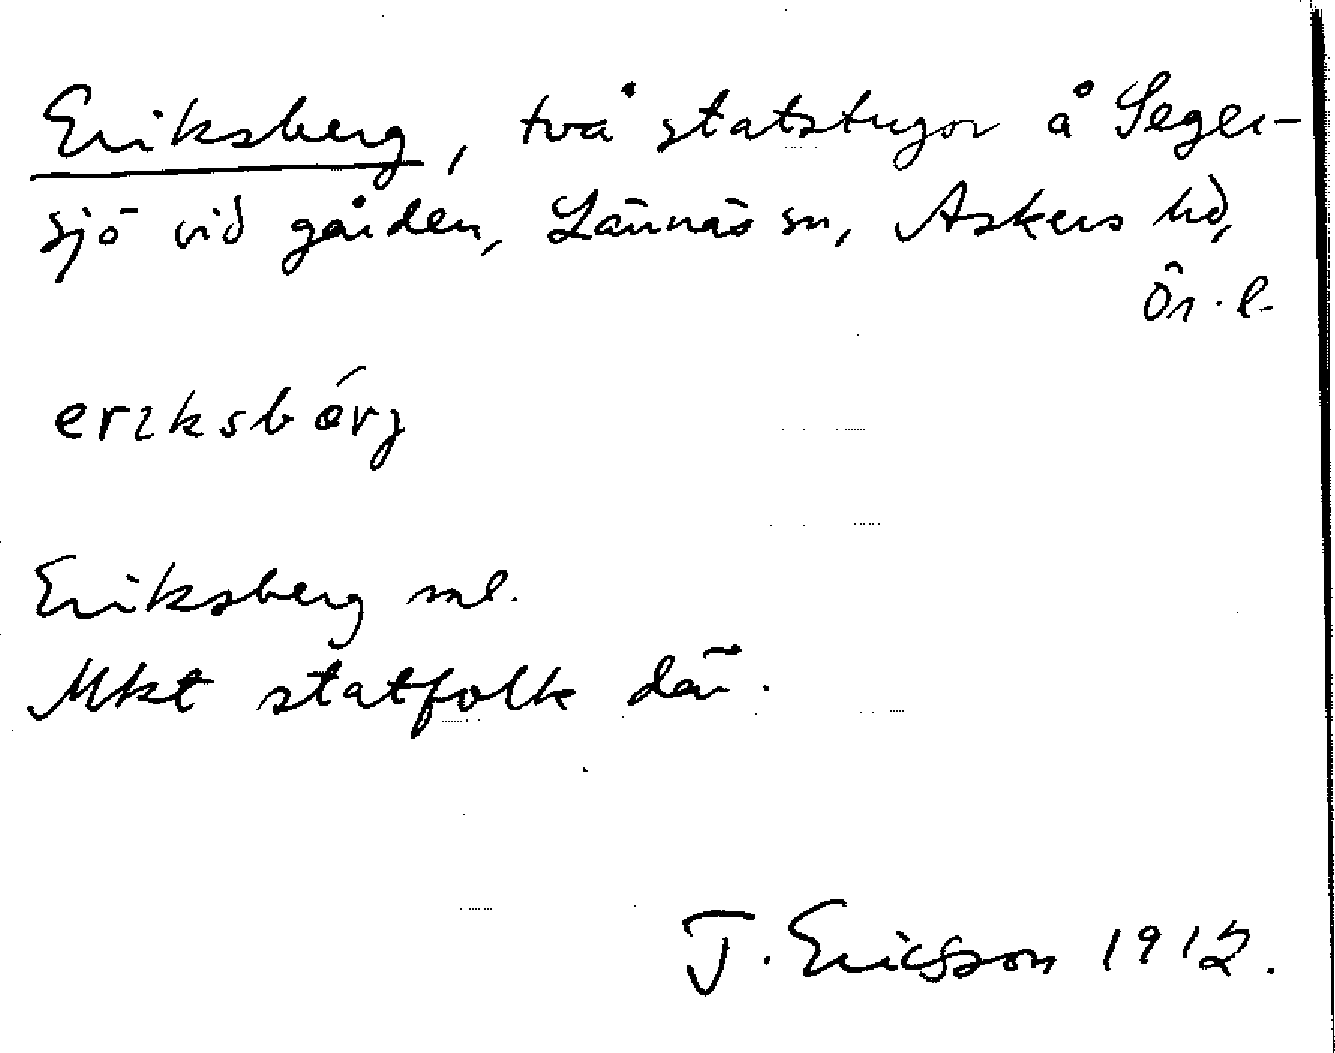 Eriksberg, två statstugor å Seger-
sjö vid gården, Lännäs sn, Askers hd,
Ör. l.
erıksbǿrj
Eriksberg ml.
Mkt statfolk där.
J. Ericsson 1912.